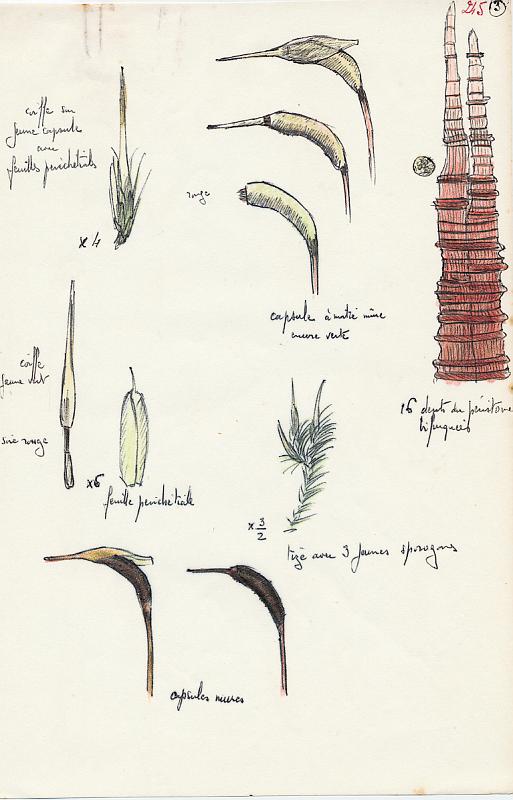 245 3
coiffe sur
jeune capsule
avec
feuilles perichétiales
x 4
rouge
capsule à moitié mûre
encore verte
coiffe
jaune vert
soie rouge
x6
feuille perichétiale
16 dents du péristome
bifurquées
x 3/2
tige avec 3 jeunes sporogones
capsules mures